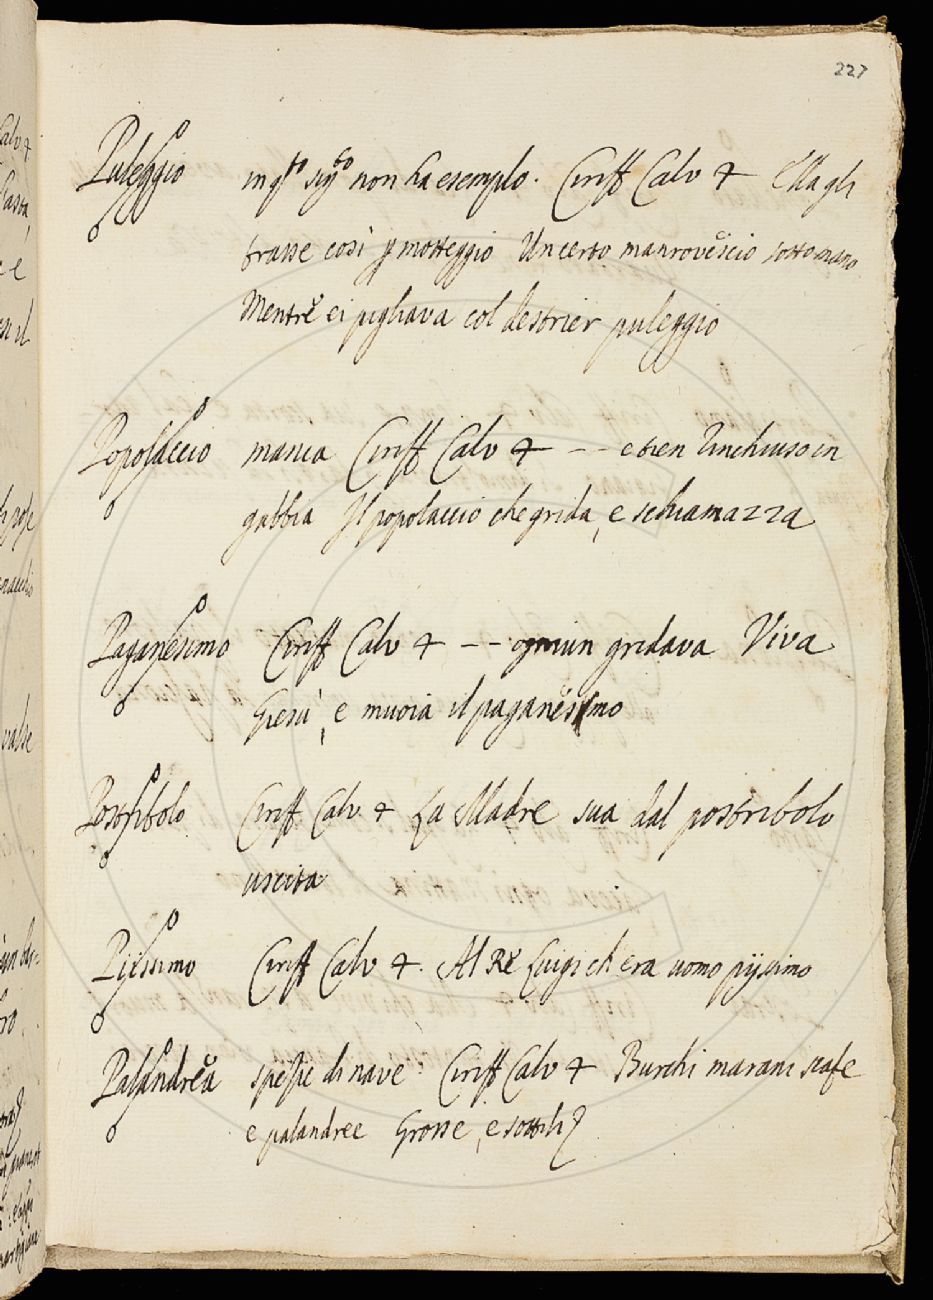 227
Puleggio in qto sigto non ha esemplo. Ciriff Calv 4 Ella gli
trasse così p motteggio Un certo manrovescio sottomano
Mentre ei pigliava col destrier puleggio
Popolaccio manca Ciriff Calv 4 -- e tien rinchiuso in
gabbia Il popolaccio che grida, e schiamazza
Paganesimo Ciriff Calv 4 -- ogniun gridava Viva
Giesù, e muoia il paganesimo
Postribolo Ciriff Calv 4 La Madre sua dal postribolo
uscita
Piissimo Ciriff Calv 4. Al Rè Luigi ch era uomo pijssimo
Palandrea spezie di nave Ciriff Calv 4 Burchi marani scafe
e palandree Grosse, e sottili